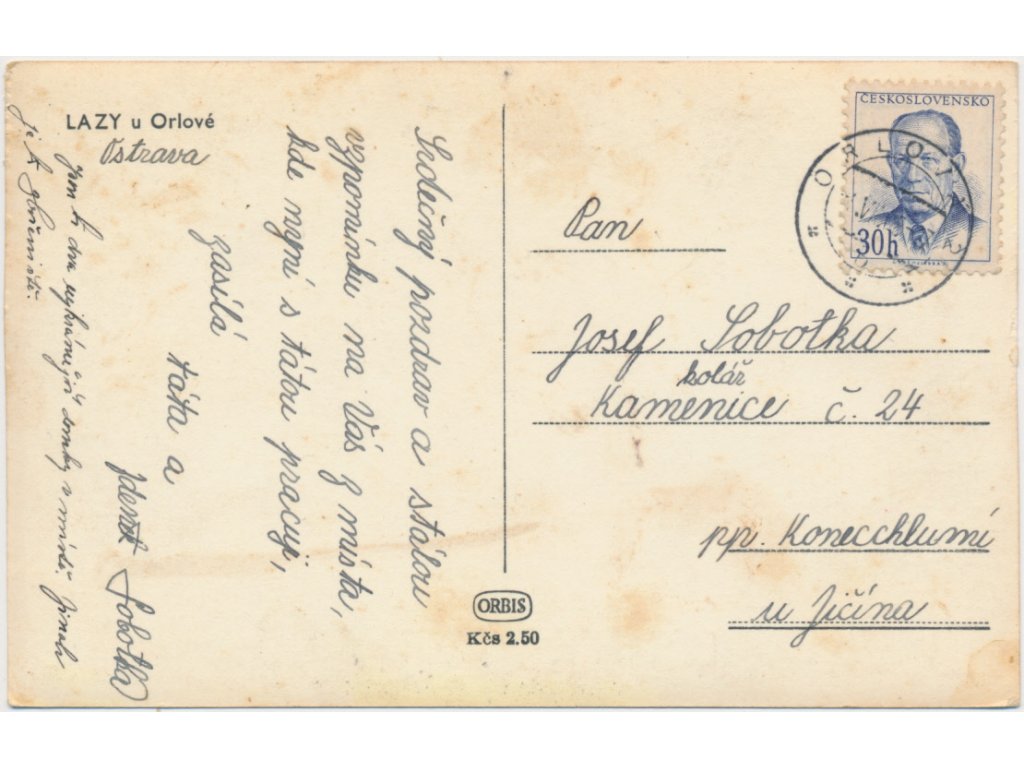 LAZY u Orlové
Ostrava
Srdečný pozdrav a stálou
vzpomínku na Vás z místa,
kde nyní s tátou pracuji,
zasílá
táta a
Zdeněk Sobotka
Jsou to dva
je to
ČESKOSLOVENSKO
30h
ORLOVÁ
Pan
Josef Sobotka
kolář
Kamenice č. 24
pp. Konecchlumí
u Jičína
ORBIS
Kčs 2.50